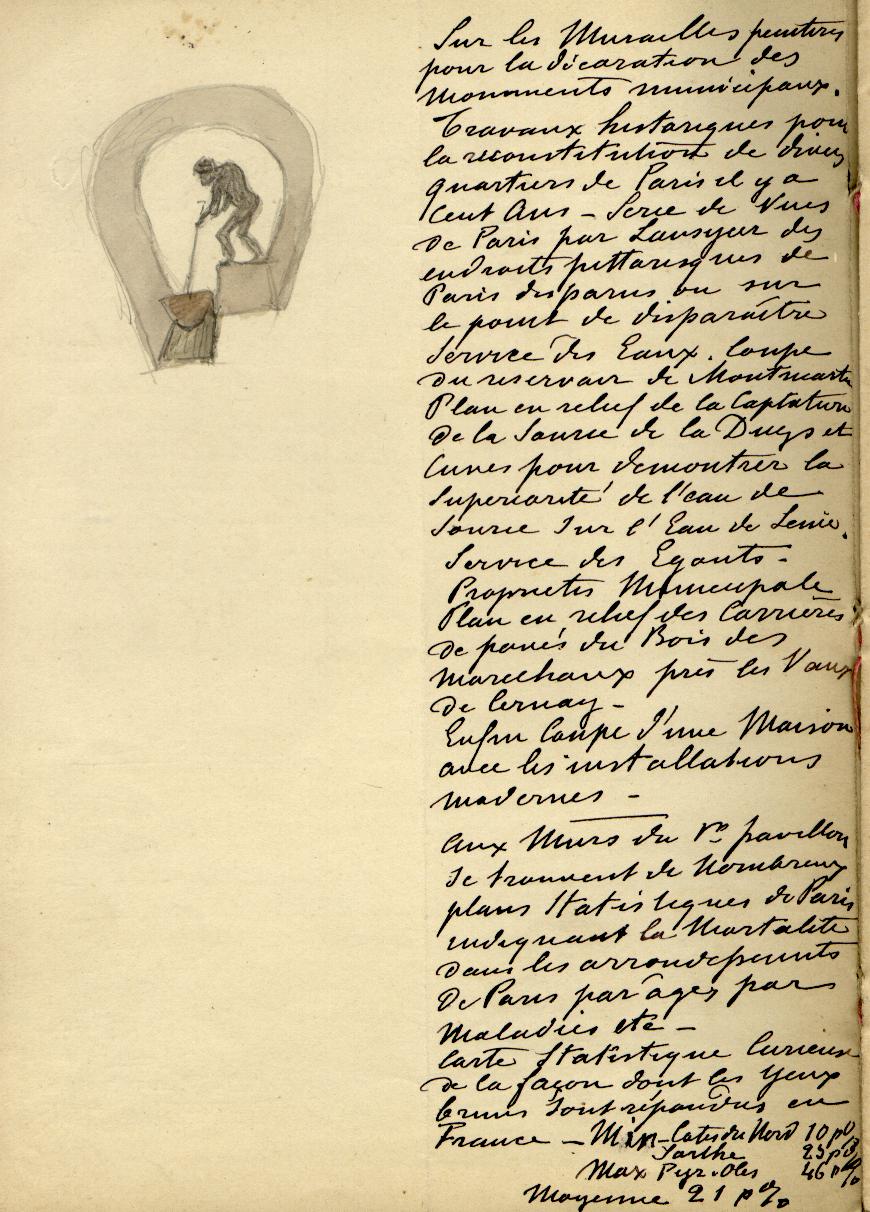 Sur les Murailles peintures
pour la décoration des
Monuments municipaux.
Travaux historiques pour
la reconstitution de divers
quartiers de Paris il y a
Cent Ans – Serie de Vues
de Paris par Lansyer des
endroits pittoresques de
Paris disparus ou sur
le point de disparaître
Service des Eaux. Coupe
du reservoir de Montmartre
Plan en relief de la Captation
de la Source de la Dhuys et
Cuves pour demontrer la
Superiorité de l'eau de
Source sur l'Eau de Seine.
Service des Egouts –
Proprietes Municipale
Plan en relief des Carrières
de pavés du Bois des
Marechaux près les Vaux
de Cernay –
Enfin Coupe d'une Maison
avec les installations
modernes –
Aux Murs du Vo pavillon
Se trouvent de Nombreux
plans Statistiques de Paris
indiquant la Mortalite
dans les arrondissements
De Paris par âges par
Maladies etc –
Carte Statistique Curieuse
de la façon dont les Yeux
bruns sont répandus en
France – Min – Cotes du Nord 10 p%
Sarthe 23 p%
Max Pyr. Oles 46 p%
Moyenne 21 p%